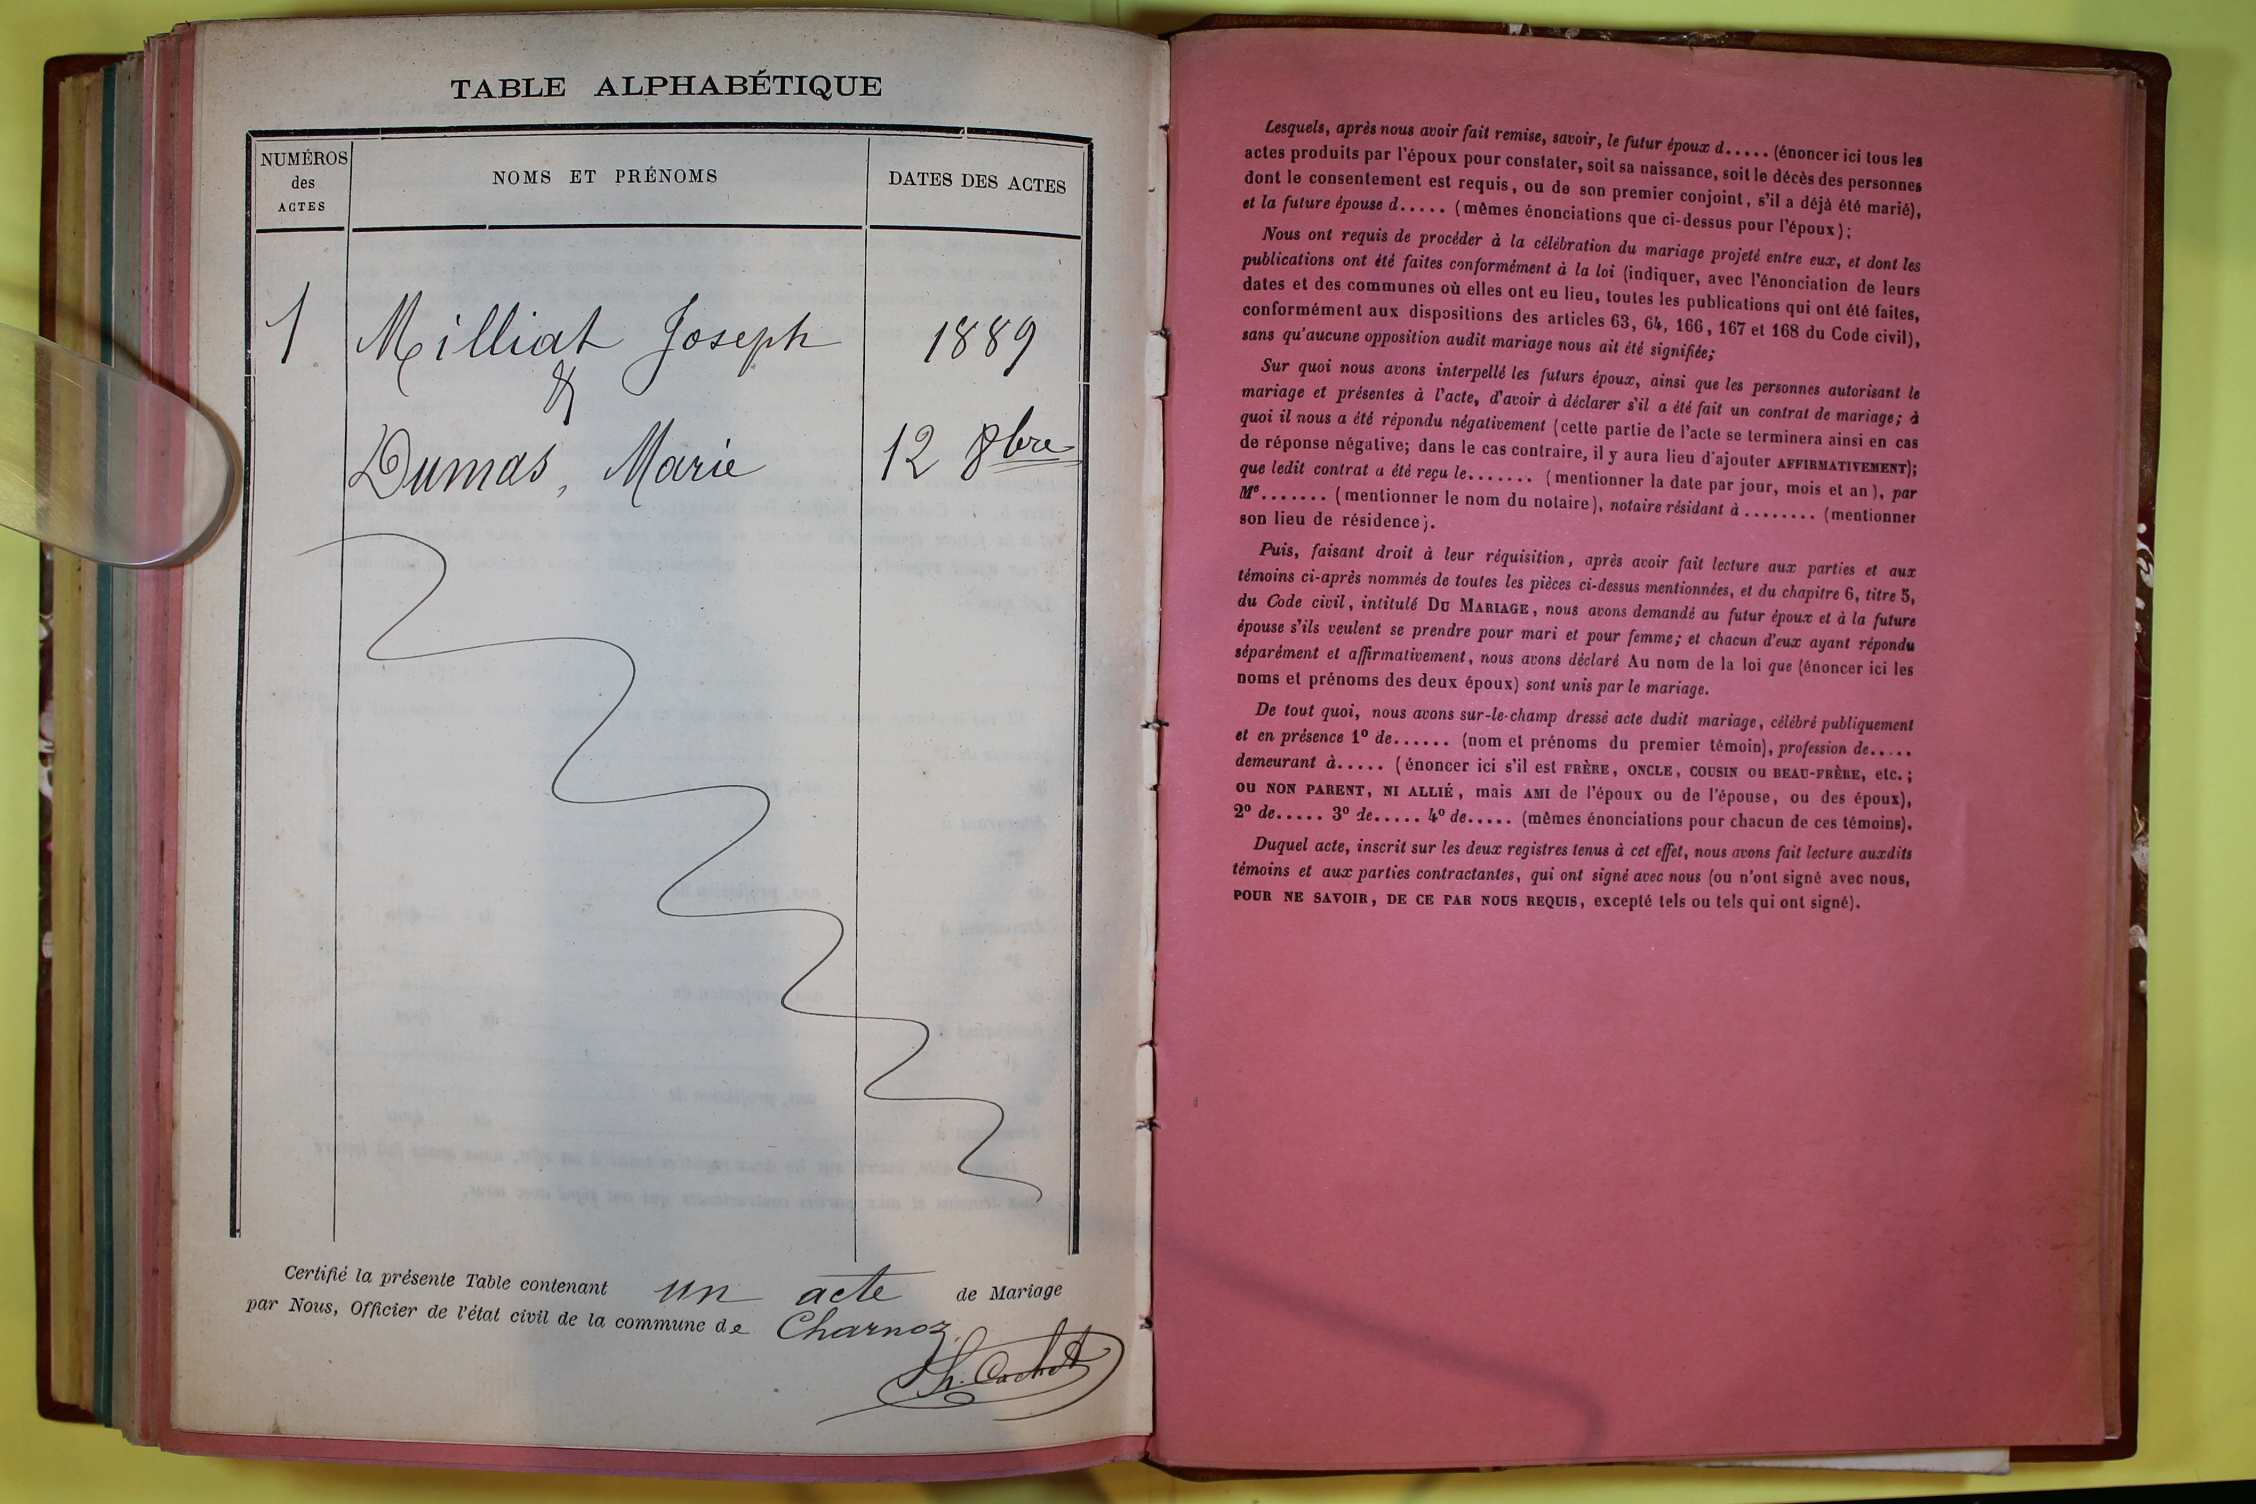 TABLE ALPHABÉTIQUE
NUMÉROS
des
ACTES
NOMS ET PRÉNOMS
DATES DES ACTES
1 Milliat Joseph 1889
&
Dumas, Marie 12 8bre
Certifié la présente Table contenant un acte de Mariage
par Nous, Officier de l'état civil de la commune de Charnoz
Cachet
Lesquels, après nous avoir fait remise, savoir, le futur époux d..... (énoncer ici tous les
actes produits par l'époux pour constater, soit sa naissance, soit le décès des personnes
dont le consentement est requis, ou de son premier conjoint, s'il a déjà été marié),
et la future épouse d..... (mêmes énonciations que ci-dessus pour l'époux);
Nous ont requis de procéder à la célébration du mariage projeté entre eux, et dont les
publications ont été faites conformément à la loi (indiquer, avec l'énonciation de leurs
dates et des communes où elles ont eu lieu, toutes les publications qui ont été faites,
conformément aux dispositions des articles 63, 64, 166, 167 et 168 du Code civil),
sans qu'aucune opposition audit mariage nous ait été signifiée;
Sur quoi nous avons interpellé les futurs époux, ainsi que les personnes autorisant le
mariage et présentes à l'acte, d'avoir à déclarer s'il a été fait un contrat de mariage; à
quoi il nous a été répondu négativement (cette partie de l'acte se terminera ainsi en cas
de réponse négative; dans le cas contraire, il y aura lieu d'ajouter AFFIRMATIVEMENT);
que ledit contrat a été reçu le....... (mentionner la date par jour, mois et an), par
Me....... (mentionner le nom du notaire), notaire résidant à ........ (mentionner
son lieu de résidence).
Puis, faisant droit à leur réquisition, après avoir fait lecture aux parties et aux
témoins ci-après nommés de toutes les pièces ci-dessus mentionnées, et du chapitre 6, titre 5,
du Code civil, intitulé DU MARIAGE, nous avons demandé au futur époux et à la future
épouse s'ils veulent se prendre pour mari et pour femme; et chacun d'eux ayant répondu
séparément et affirmativement, nous avons déclaré Au nom de la loi que (énoncer ici les
noms et prénoms des deux époux) sont unis par le mariage.
De tout quoi, nous avons sur-le-champ dressé acte dudit mariage, célébré publiquement
et en présence 1º de...... (nom et prénoms du premier témoin), profession de.....
demeurant à..... (énoncer ici s'il est FRÈRE, ONCLE, COUSIN ou BEAU-FRÈRE, etc.;
OU NON PARENT, NI ALLIÉ, mais AMI de l'époux ou de l'épouse, ou des époux),
2º de..... 3º de..... 4º de..... (mêmes énonciations pour chacun de ces témoins).
Duquel acte, inscrit sur les deux registres tenus à cet effet, nous avons fait lecture auxdits
témoins et aux parties contractantes, qui ont signé avec nous (ou n'ont signé avec nous,
POUR NE SAVOIR, DE CE PAR NOUS REQUIS, excepté tels ou tels qui ont signé).